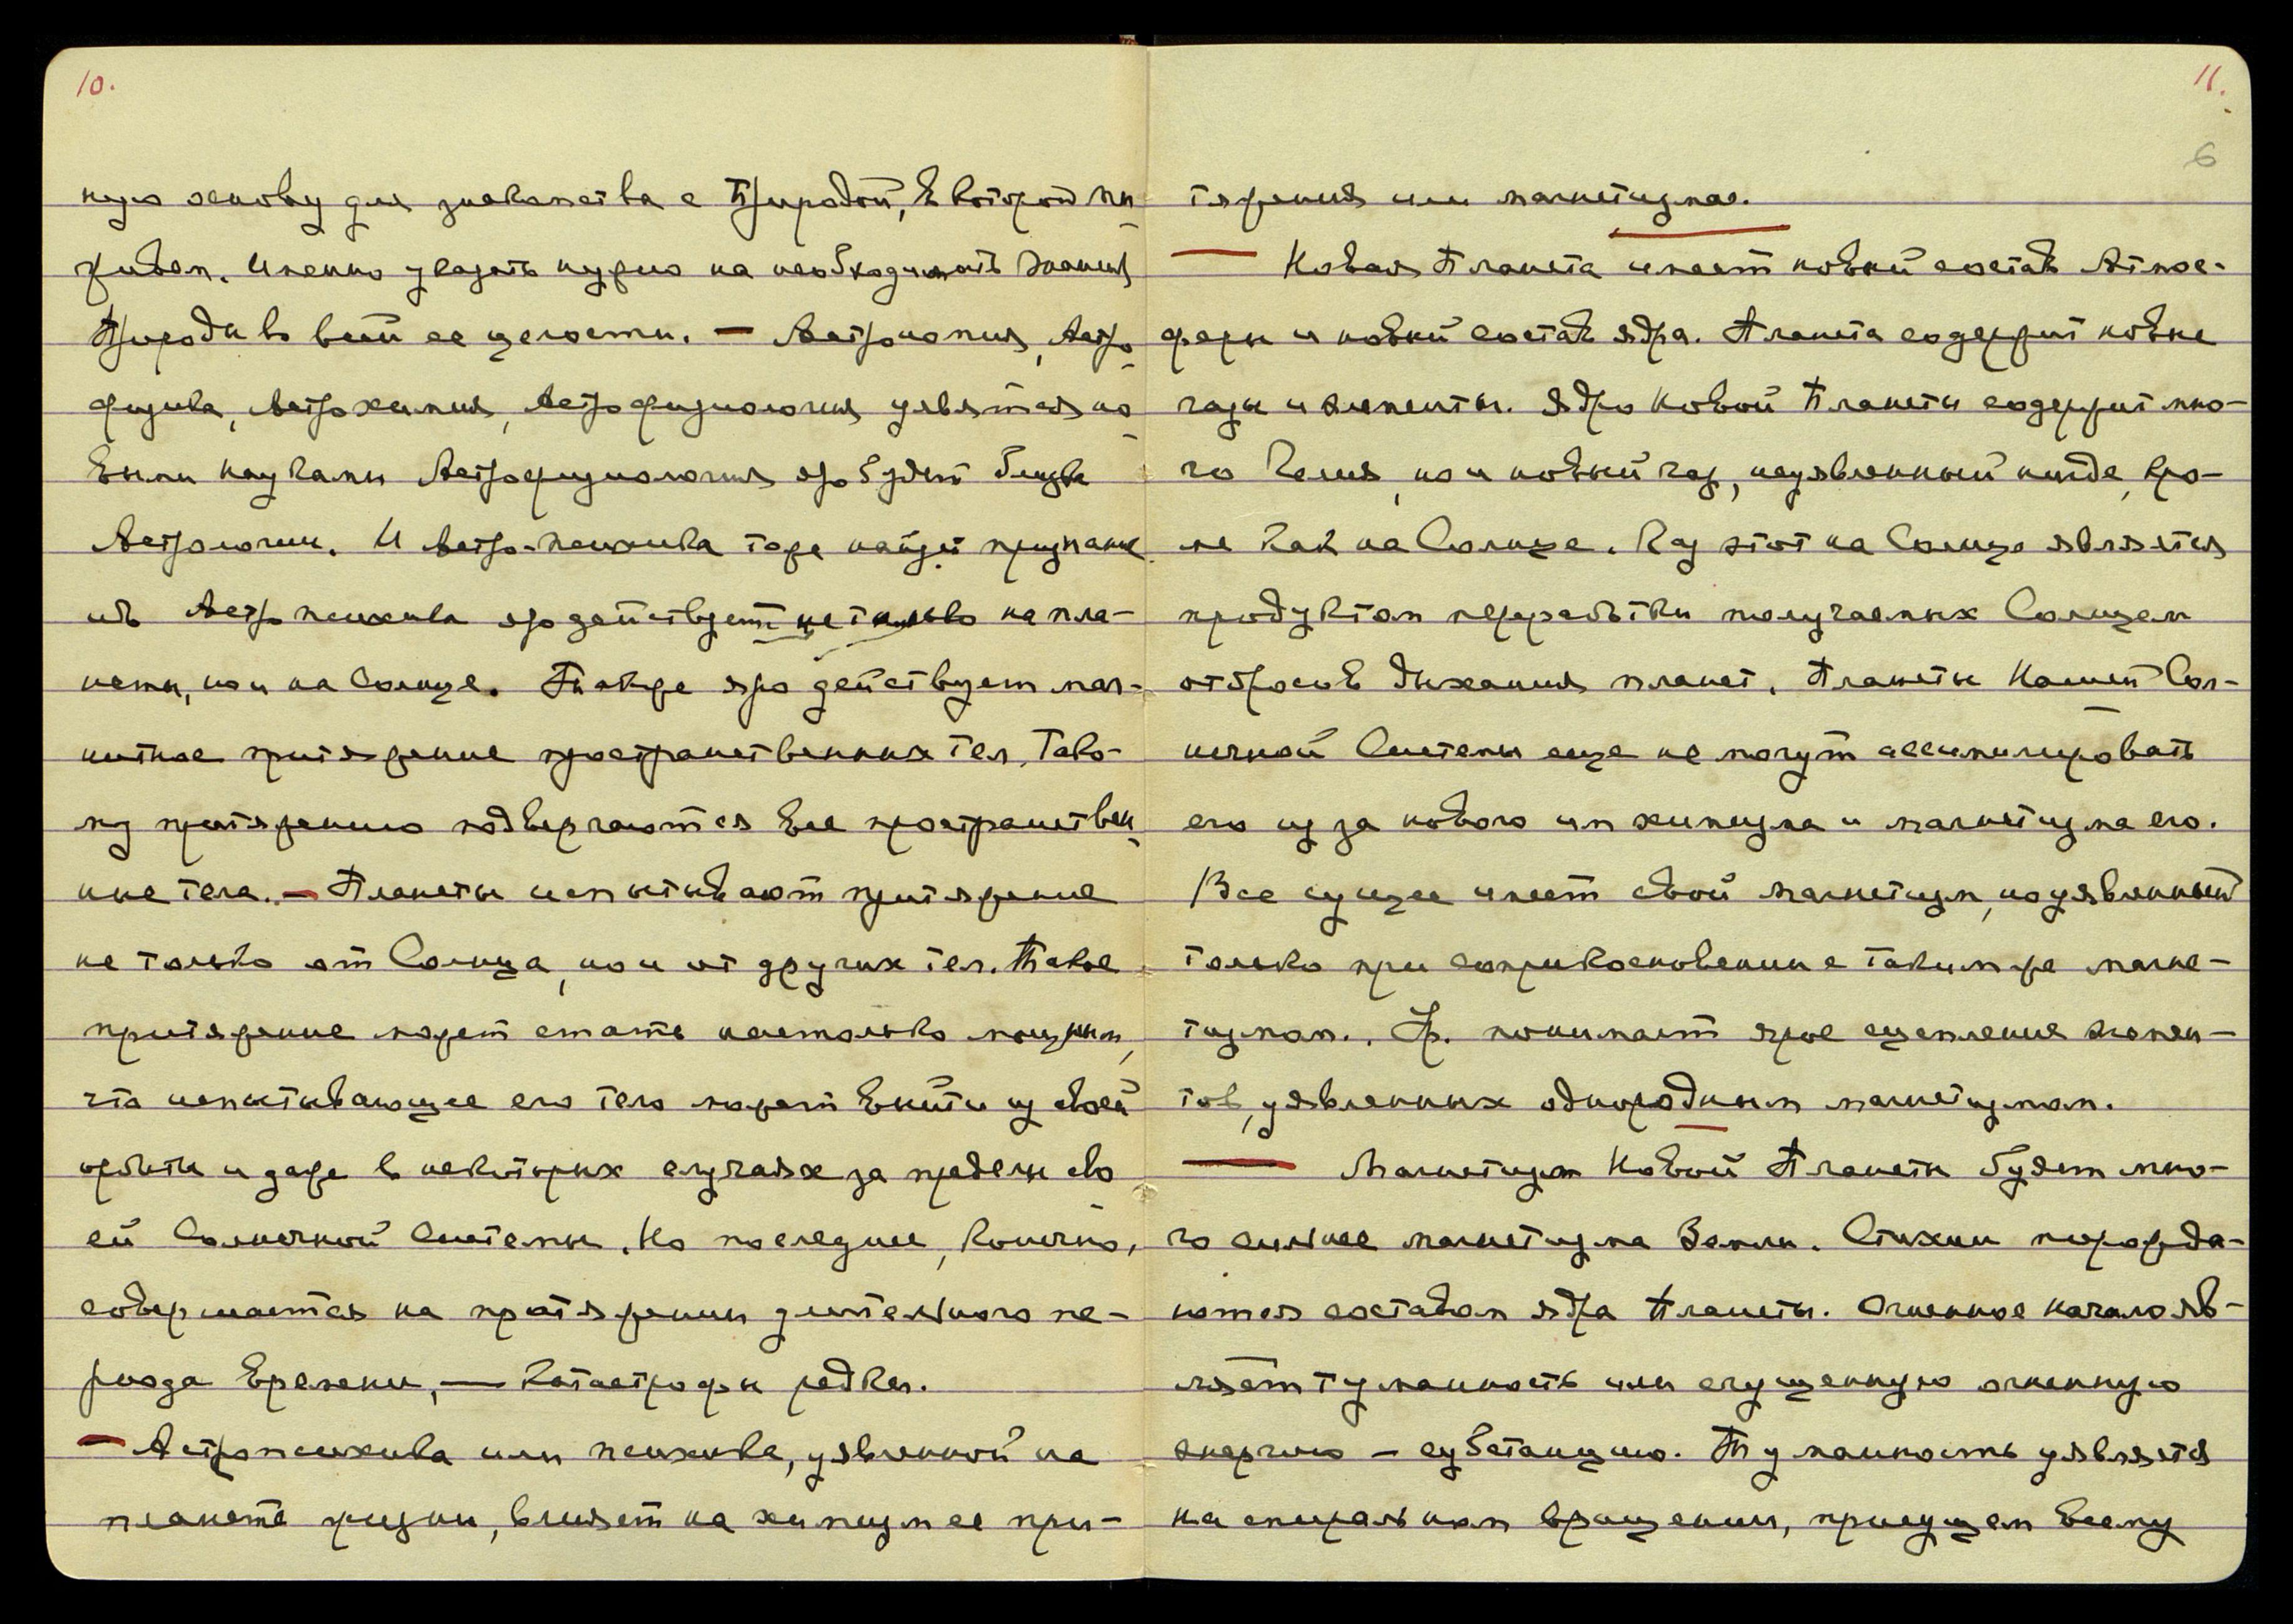 10.
ную основу для знакомства с Природой, в которой мы
живем. Именно указать нужно на необходимость знания
Природы во всей ее целости. — Астрономия, Астро
физика, Астрохимия, Астрофизиология уявятся но
выми науками Астрофизиология яро будет близка
Астрологии. И Астро-психика тоже найдет признание
ибо Астропсихика яро действует не только на пла-
неты, но и на Солнце. Также яро действует маг-
нитное притяжение пространственных тел. Тако-
му притяжению подвергаются все пространствен
ные тела. — Планеты испытывают притяжение
не только от Солнца, но и от других тел. Такое
притяжение может стать настолько мощным,
что испытывающее его тело может выйти из своей
орбиты и даже в некоторых случаях за пределы сво
ей Солнечной Системы. Но последнее, конечно,
совершается на протяжении длительного пе-
риода времени, — катастрофы редки.
— Астропсихика или психика, уявленной на
планете жизни, влияет на химизм ее при-
11.
6
тяжения или магнетизма.
— Новая Планета имеет новый состав Атмос-
феры и новый состав ядра. Планета содержит новые
газы и элементы. Ядро Новой Планеты содержит мно-
го Гелия, но и новый газ, неуявленный нигде, кро-
ме как на Солнце. Газ этот на Солнце является
продуктом переработки получаемых Солнцем
отбросов дыхания планет. Планеты Нашей Сол-
нечной Системы еще не могут ассимилировать
его из за нового им химизма и магнетизма его.
Все сущее имеет свой магнетизм, но уявленный
только при соприкосновении с таким же магне-
тизмом. Ур. понимает ярое сцепление элемен-
тов, уявленных однородным магнетизмом.
— Магнетизм Новой Планеты будет мно-
го сильнее магнетизма Земли. Стихии порожда-
ются составом ядра Планеты. Огненное начало яв-
ляет туманность или сгущенную огненную
энергию — субстанцию. Туманность уявляется
на спиральном вращении, присущем всему